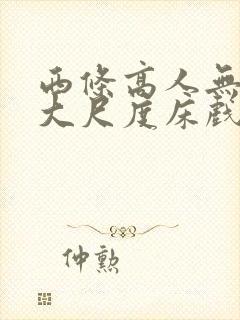 西條高人無
大尺度床戲
仲勲